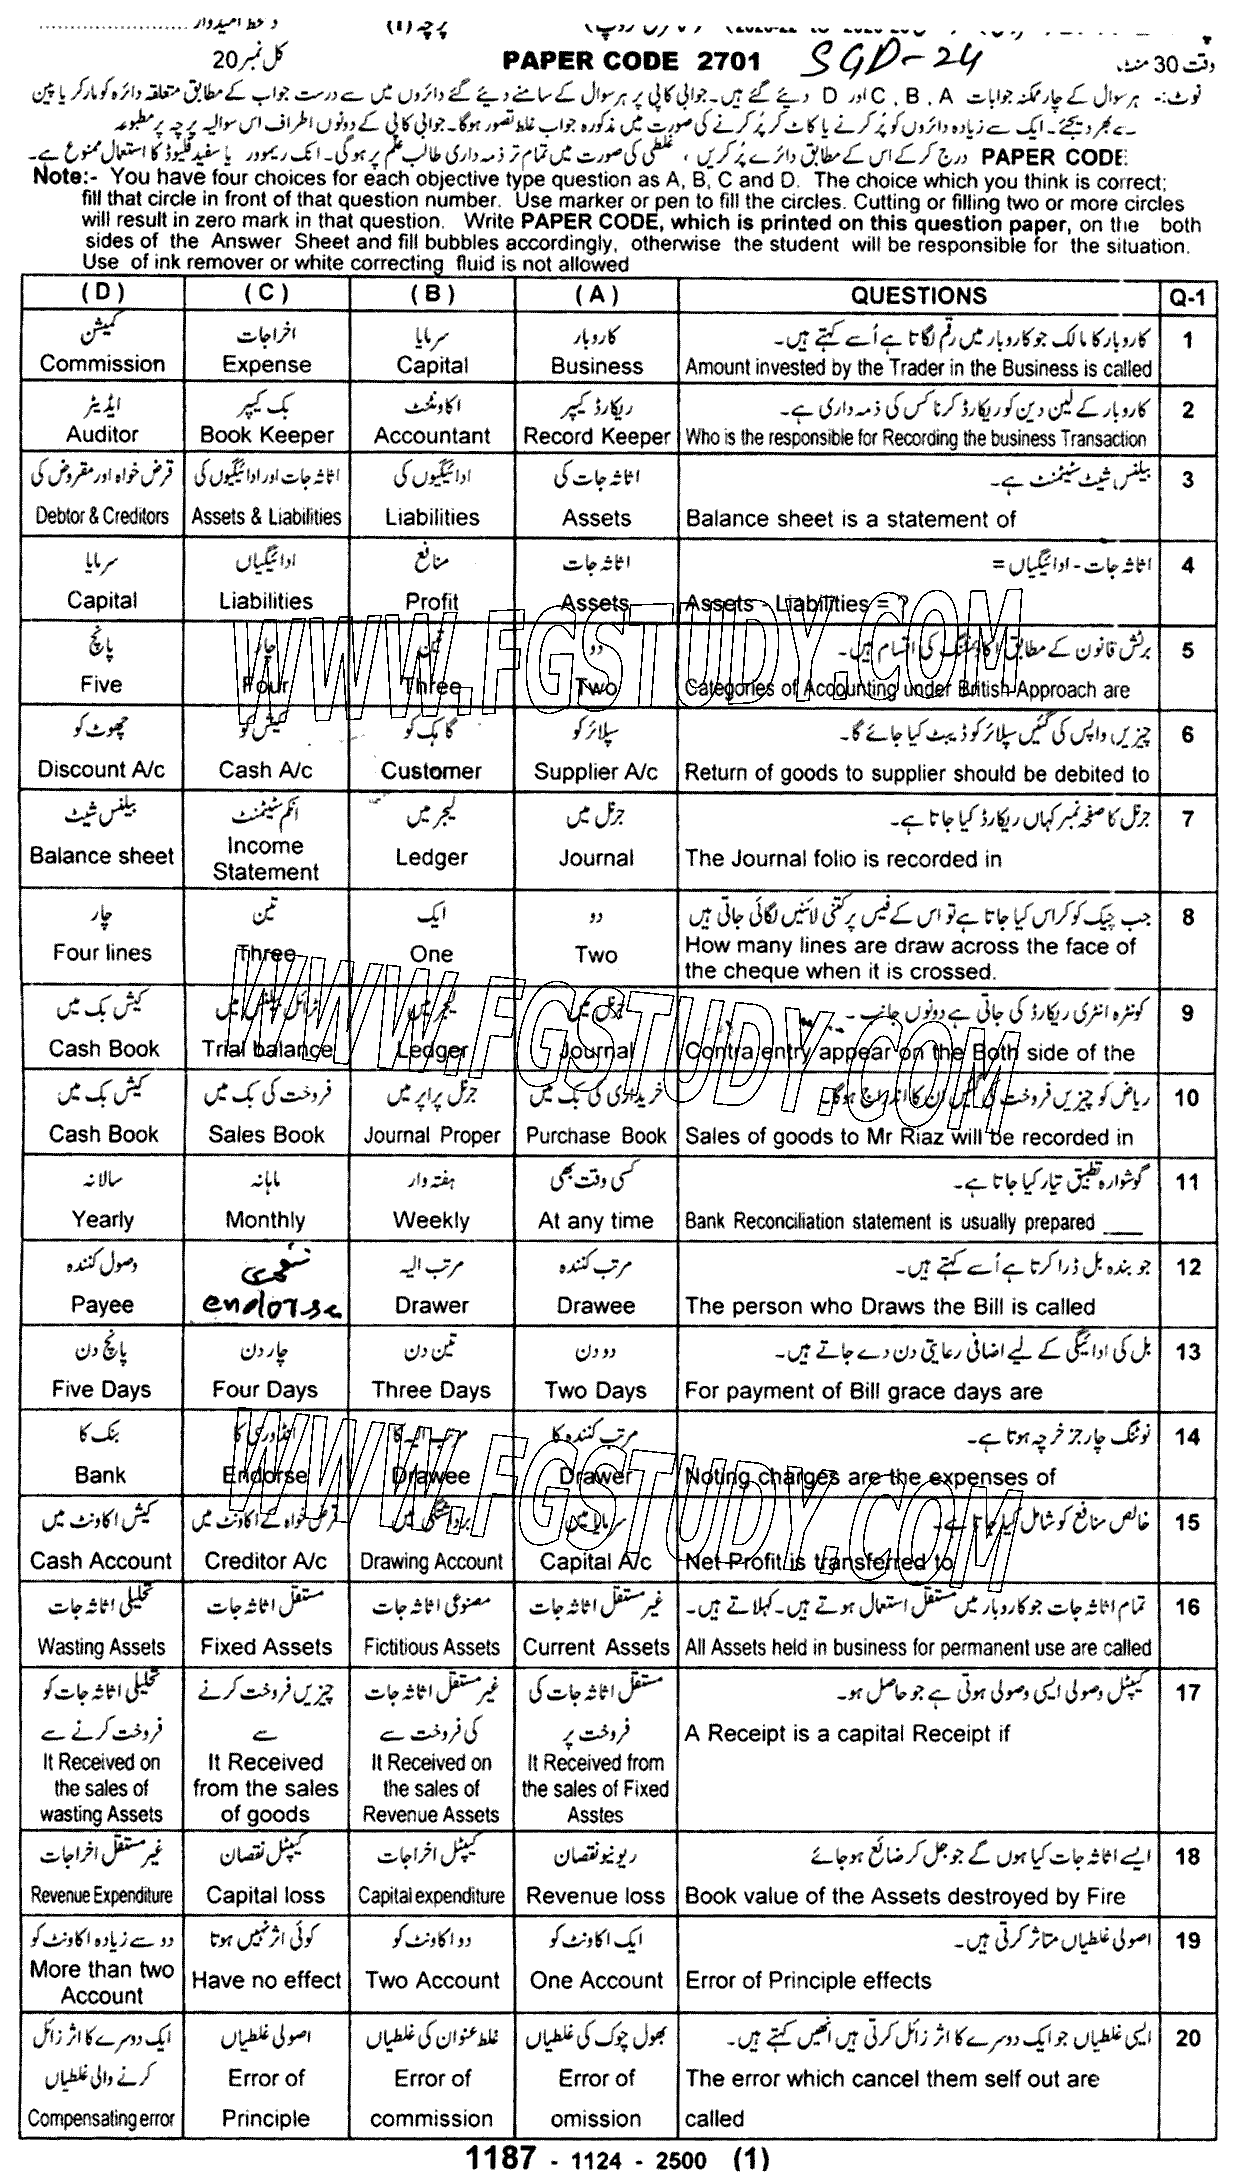 دستخط امیدوار
پرچہ (I)
وقت 30 منٹ
PAPER CODE 2701
SGD-24
کل نمبر 20
نوٹ:- ہر سوال کے چار ممکنہ جوابات A ، B ، C اور D دیئے گئے ہیں۔ جوابی کاپی پر ہر سوال کے سامنے دیئے گئے دائروں میں سے درست جواب کے مطابق متعلقہ دائرہ کو مارکر یا پین
سے بھر دیجئے۔ ایک سے زیادہ دائروں کو پُر کرنے یا کاٹ کر پُر کرنے کی صورت میں مذکورہ جواب غلط تصور ہوگا۔ جوابی کاپی کے دونوں اطراف اس سوالیہ پرچہ پر مطبوعہ
PAPER CODE درج کر کے اس کے مطابق دائرے پُر کریں، غلطی کی صورت میں تمام تر ذمہ داری طالب علم پر ہوگی۔ انک ریموور یا سفید فلیوڈ کا استعمال ممنوع ہے۔
Note:- You have four choices for each objective type question as A, B, C and D. The choice which you think is correct;
fill that circle in front of that question number. Use marker or pen to fill the circles. Cutting or filling two or more circles
will result in zero mark in that question. Write PAPER CODE, which is printed on this question paper, on the both
sides of the Answer Sheet and fill bubbles accordingly, otherwise the student will be responsible for the situation.
Use of ink remover or white correcting fluid is not allowed
( D ) ( C ) ( B ) ( A ) QUESTIONS Q-1
کمیشن اخراجات سرمایا کاروبار کاروبار کا مالک جو کاروبار میں رقم لگاتا ہے اُسے کہتے ہیں۔ 1
Commission Expense Capital Business Amount invested by the Trader in the Business is called
ایڈیٹر بک کیپر اکاونٹنٹ ریکارڈ کیپر کاروبار کے لین دین کو ریکارڈ کرنا کس کی ذمہ داری ہے۔ 2
Auditor Book Keeper Accountant Record Keeper Who is the responsible for Recording the business Transaction
قرض خواہ اور مقروض کی اثاثہ جات اور ادائیگیوں کی ادائیگیوں کی اثاثہ جات کی بیلنس شیٹ سٹیٹمنٹ ہے۔ 3
Debtor & Creditors Assets & Liabilities Liabilities Assets Balance sheet is a statement of
سرمایا ادائیگیاں منافع اثاثہ جات اثاثہ جات - ادائیگیاں = 4
Capital Liabilities Profit Assets Assets - Liabilities = ?
پانچ چار تین دو برٹش قانون کے مطابق اکاؤنٹنگ کی اقسام ہیں۔ 5
Five Four Three Two Categories of Accounting under British Approach are
WWW.FGSTUDY.COM
چھوٹ کو کیش کو گاہک کو سپلائر کو چیزیں واپس کی گئیں سپلائر کو ڈیبٹ کیا جائے گا۔ 6
Discount A/c Cash A/c Customer Supplier A/c Return of goods to supplier should be debited to
بیلنس شیٹ انکم سٹیٹمنٹ لیجر میں جرنل میں جرنل کا صفحہ نمبر کہاں ریکارڈ کیا جاتا ہے۔ 7
Balance sheet Income Statement Ledger Journal The Journal folio is recorded in
چار تین ایک دو جب چیک کو کراس کیا جاتا ہے تو اس کے فیس پر کتنی لائنیں لگائی جاتی ہیں 8
Four lines Three One Two How many lines are draw across the face of
the cheque when it is crossed.
کیش بک میں ٹرائل بیلنس میں لیجر میں جرنل میں کونٹرہ انٹری ریکارڈ کی جاتی ہے دونوں جانب۔ 9
Cash Book Trial balance Ledger Journal Contra entry appear on the Both side of the
WWW.FGSTUDY.COM
کیش بک میں فروخت کی بک میں جرنل پراپر میں خریداری کی بک میں ریاض کو چیزیں فروخت کی گئیں ان کا اندراج ہوگا۔ 10
Cash Book Sales Book Journal Proper Purchase Book Sales of goods to Mr Riaz will be recorded in
سالانہ ماہانہ ہفتہ وار کسی وقت بھی گوشوارہ تطبیق تیار کیا جاتا ہے۔ 11
Yearly Monthly Weekly At any time Bank Reconciliation statement is usually prepared ___
وصول کنندہ مرتب الیہ مرتب کنندہ جو بندہ بل ڈرا کرتا ہے اُسے کہتے ہیں۔ 12
Payee endorse Drawer Drawee The person who Draws the Bill is called
پانچ دن چار دن تین دن دو دن بل کی ادائیگی کے لیے اضافی رعایتی دن دے جاتے ہیں۔ 13
Five Days Four Days Three Days Two Days For payment of Bill grace days are
بنک کا انڈاورسی کا مرتب الیہ کا مرتب کنندہ کا نوٹنگ چارجز خرچہ ہوتا ہے۔ 14
Bank Endorse Drawee Drawer Noting charges are the expenses of
WWW.FGSTUDY.COM
کیش اکاونٹ میں قرض خواہ کے اکاونٹ میں برداشتگی میں سرمایا میں خالص منافع کو شامل کیا جاتا ہے۔ 15
Cash Account Creditor A/c Drawing Account Capital A/c Net Profit is transferred to
تحلیلی اثاثہ جات مستقل اثاثہ جات مصنوعی اثاثہ جات غیر مستقل اثاثہ جات تمام اثاثہ جات جو کاروبار میں مستقل استعمال ہوتے ہیں۔ کہلاتے ہیں۔ 16
Wasting Assets Fixed Assets Fictitious Assets Current Assets All Assets held in business for permanent use are called
تحلیلی اثاثہ جات کو چیزیں فروخت کرنے غیر مستقل اثاثہ جات مستقل اثاثہ جات کی کیپٹل وصولی ایسی وصولی ہوتی ہے جو حاصل ہو۔ 17
فروخت کرنے سے سے کی فروخت سے فروخت پر A Receipt is a capital Receipt if
It Received on It Received It Received on It Received from
the sales of from the sales the sales of the sales of Fixed
wasting Assets of goods Revenue Assets Asstes
غیر مستقل اخراجات کیپٹل نقصان کیپٹل اخراجات ریونیو نقصان ایسے اثاثہ جات کیا ہوں گے جو جل کر ضائع ہو جائے 18
Revenue Expenditure Capital loss Capital expenditure Revenue loss Book value of the Assets destroyed by Fire
دو سے زیادہ اکاونٹ کو کوئی اثر نہیں ہوتا دو اکاونٹ کو ایک اکاونٹ کو اصولی غلطیاں متاثر کرتی ہیں۔ 19
More than two Account Have no effect Two Account One Account Error of Principle effects
ایک دوسرے کا اثر زائل اصولی غلطیاں غلط عنوان کی غلطیاں بھول چوک کی غلطیاں ایسی غلطیاں جو ایک دوسرے کا اثر زائل کرتی ہیں انھیں کہتے ہیں۔ 20
کرنے والی غلطیاں Error of Error of Error of The error which cancel them self out are
Compensating error Principle commission omission called
1187 - 1124 - 2500 (1)